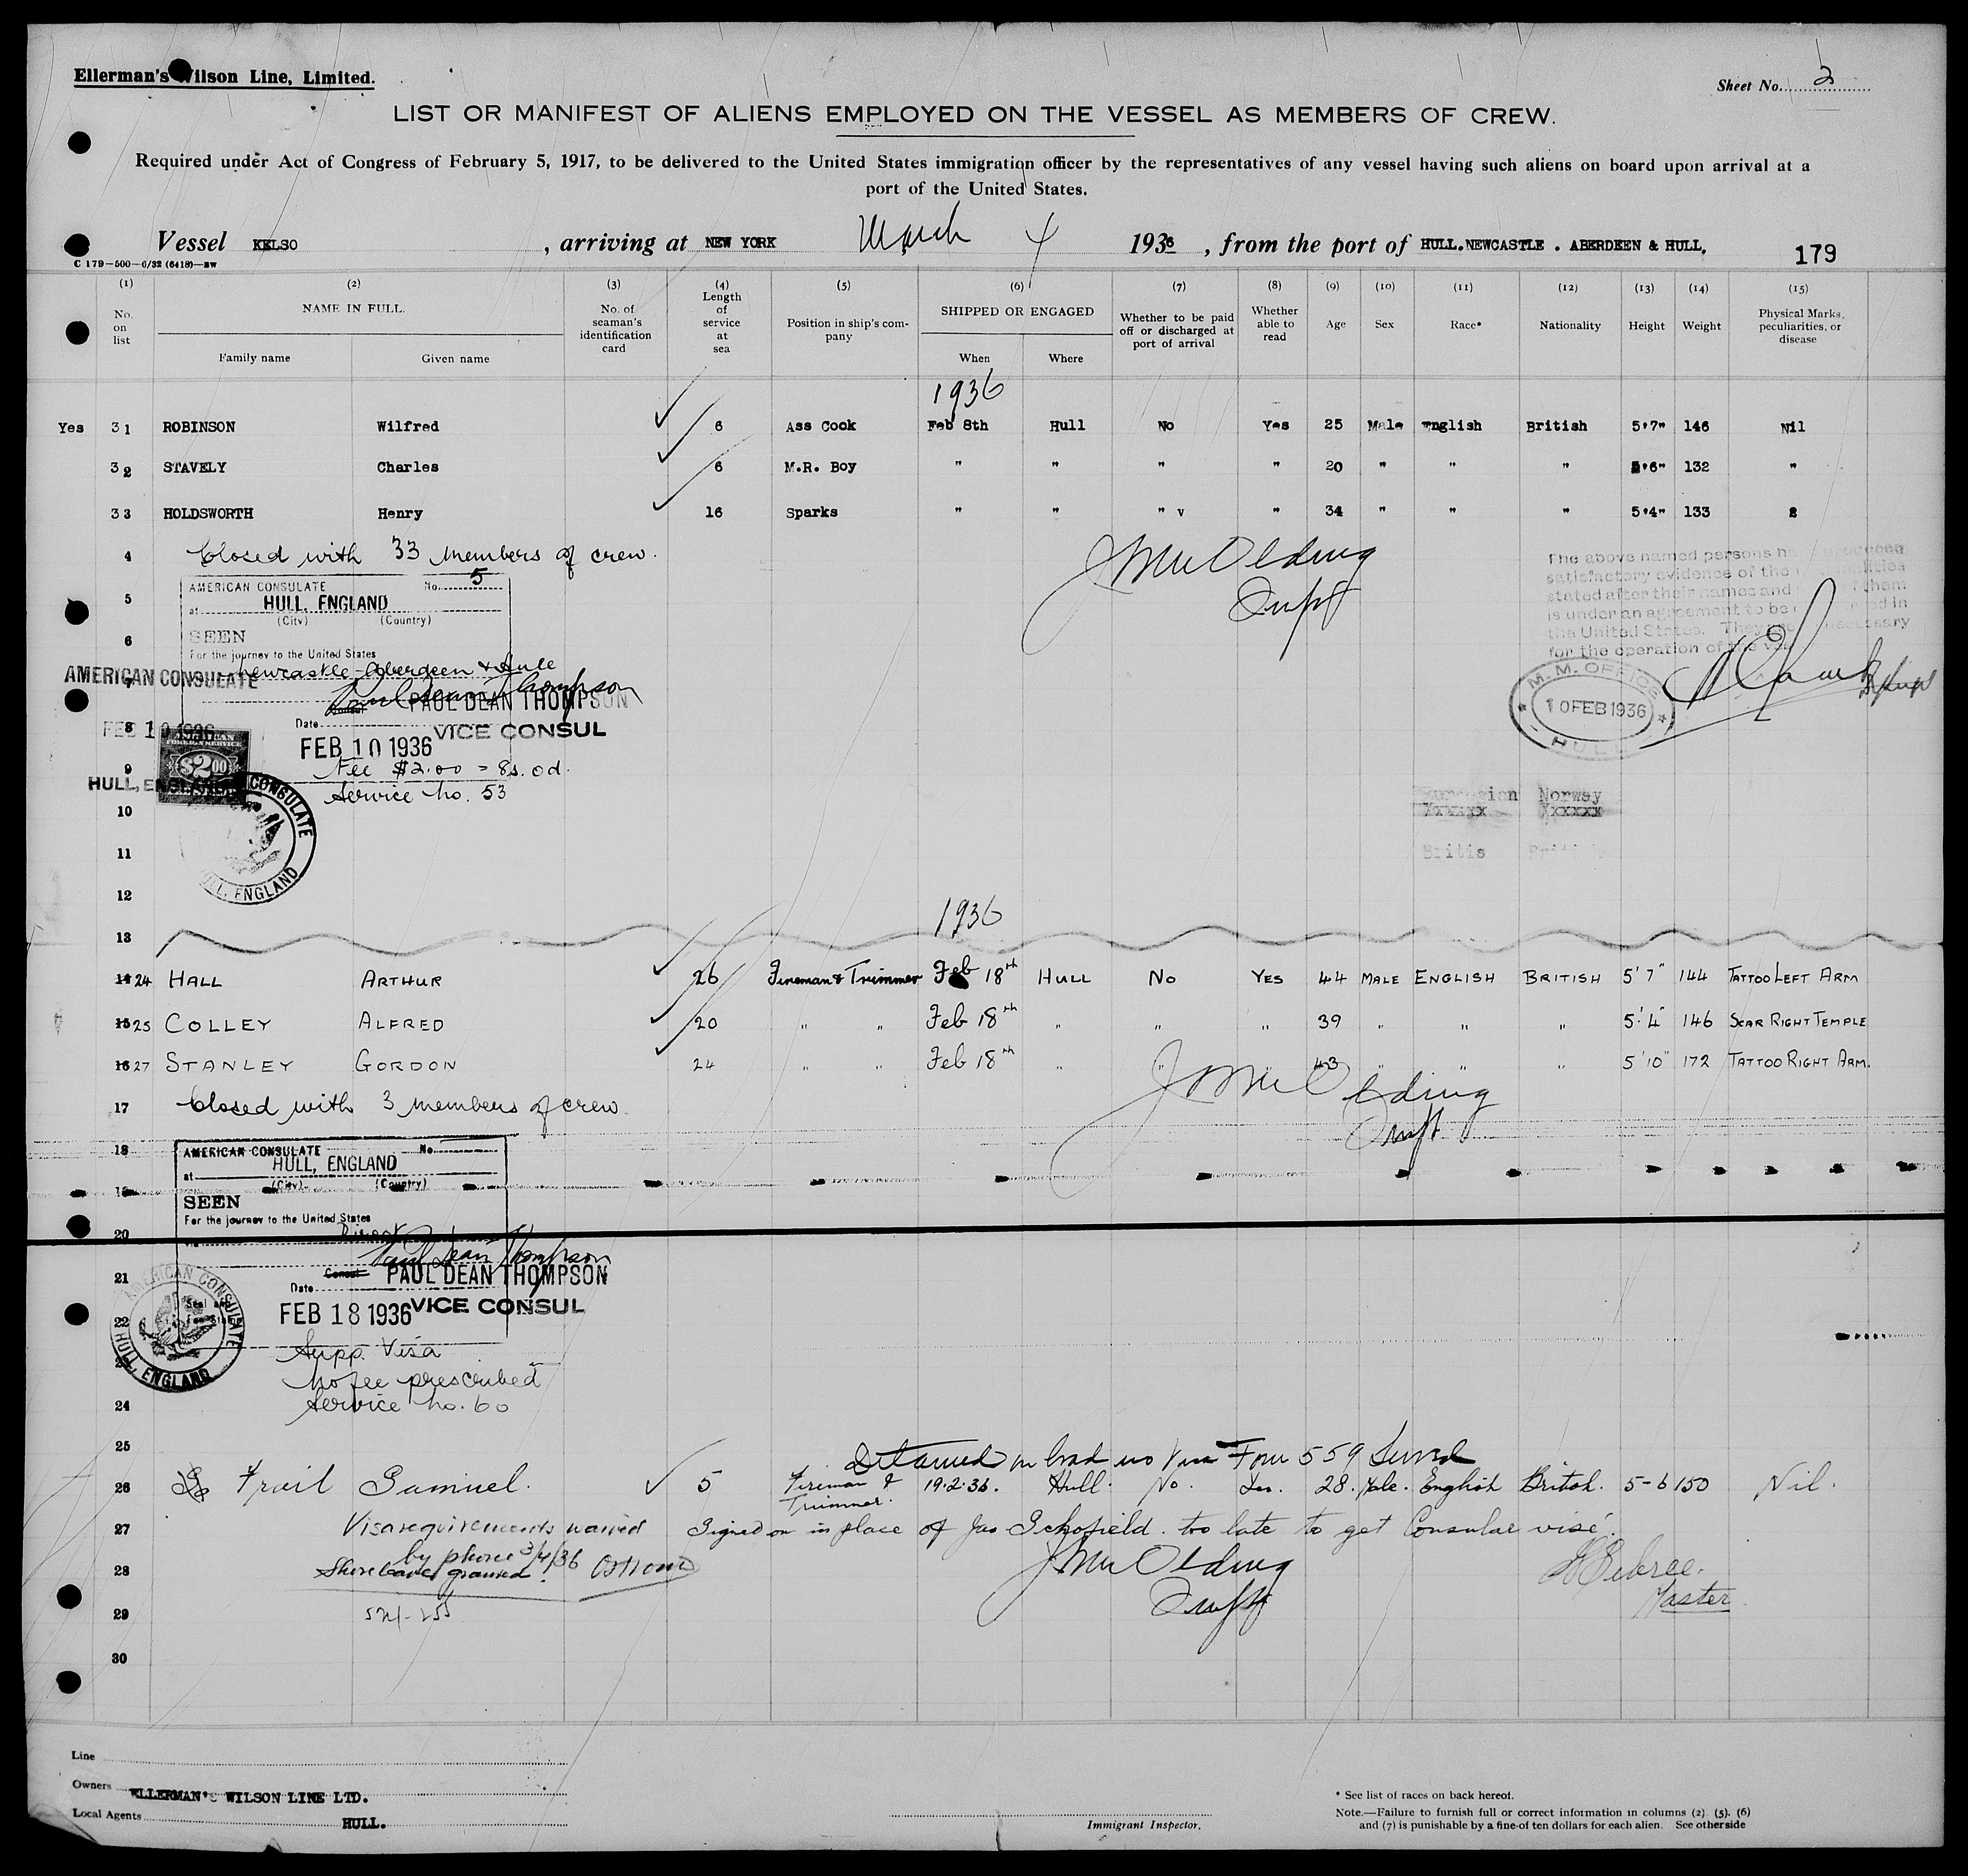 Ellerman's Wilson Line, Limited.
Sheet No. 2
LIST OR MANIFEST OF ALIENS EMPLOYED ON THE VESSEL AS MEMBERS OF CREW.
Required under Act of Congress of February 5, 1917, to be delivered to the United States immigration officer by the representatives of any vessel having such aliens on board upon arrival at a
port of the United States.
Vessel KELSO , arriving at NEW YORK March 4 1936 , from the port of HULL.NEWCASTLE . ABERDEEN & HULL.
C 179-500-6/32 (6418)-EW
179
(1) (2) (3) (4) (5) (6) (7) (8) (9) (10) (11) (12) (13) (14) (15)
No. on list
NAME IN FULL.
Family name Given name
No. of seaman's identification card
Length of service at sea
Position in ship's company
SHIPPED OR ENGAGED
When Where
Whether to be paid off or discharged at port of arrival
Whether able to read
Age Sex Race* Nationality Height Weight
Physical Marks, peculiarities, or disease
1936
Yes 31 ROBINSON Wilfred 6 Ass Cook Feb 8th Hull No Yes 25 Male English British 5'7" 146 Nil
32 STAVELY Charles 6 M.R. Boy " " " " 20 " " " 5'6" 132 "
33 HOLDSWORTH Henry 16 Sparks " " " v " 34 " " " 5'4" 133
4 Closed with 33 members of crew.
The above named persons
satisfactory evidence of the
stated after their names and them
is under an agreement to be in
the United States. They necessary
for the operation of the
AMERICAN CONSULATE No. 5
5 at HULL, ENGLAND
(City) (Country)
6 SEEN
For the journey to the United States
Newcastle-Aberdeen & Hull
AMERICAN CONSULATE
7 Paul Dean Thompson
Consul PAUL DEAN THOMPSON
VICE CONSUL
M.M. OFFICE
10 FEB 1936
HULL
8 FEB 10 1936
Date FEB 10 1936
FOREIGN SERVICE
$2.00
9 Fee $2.00 = 8s. 0d.
HULL, ENGLAND
Service No. 53
CONSULATE
HULL, ENGLAND
10 Norway
11
12
1936
13
14 24 HALL ARTHUR 26 Fireman & Trimmer Feb 18th HULL No YES 44 MALE ENGLISH BRITISH 5'7" 144 TATTOO LEFT ARM
15 25 COLLEY ALFRED 20 " " Feb 18th " " " 39 " " " 5'4" 146 SCAR RIGHT TEMPLE
16 27 STANLEY GORDON 24 " " Feb 18th " " " 43 " " " 5'10" 172 TATTOO RIGHT ARM.
17 Closed with 3 members of crew.
18 AMERICAN CONSULATE No.
at HULL, ENGLAND
19 (City) (Country)
SEEN
For the journey to the United States
20 via Direct
Paul Dean Thompson
21 Consul PAUL DEAN THOMPSON
Date
22 FEB 18 1936 VICE CONSUL
AMERICAN CONSULATE
HULL, ENGLAND
23 Supp. Visa
No fee prescribed
24 Service No. 60
25 Detained on board no visa Form 559 Served
26 Frail Samuel. 5 Fireman & Trimmer. 19.2.36. Hull. No. Yes. 28. Male. English British. 5-6 150 Nil.
27 Visa requirements waived Signed on in place of Jas Schofield. too late to get Consular visé.
by phone 3/4/36
28 Shore leave granted.
Master
29
30
Line
Owners ELLERMAN'S WILSON LINE LTD.
Local Agents HULL.
Immigrant Inspector.
* See list of races on back hereof.
Note.—Failure to furnish full or correct information in columns (2) (5), (6)
and (7) is punishable by a fine of ten dollars for each alien. See other side